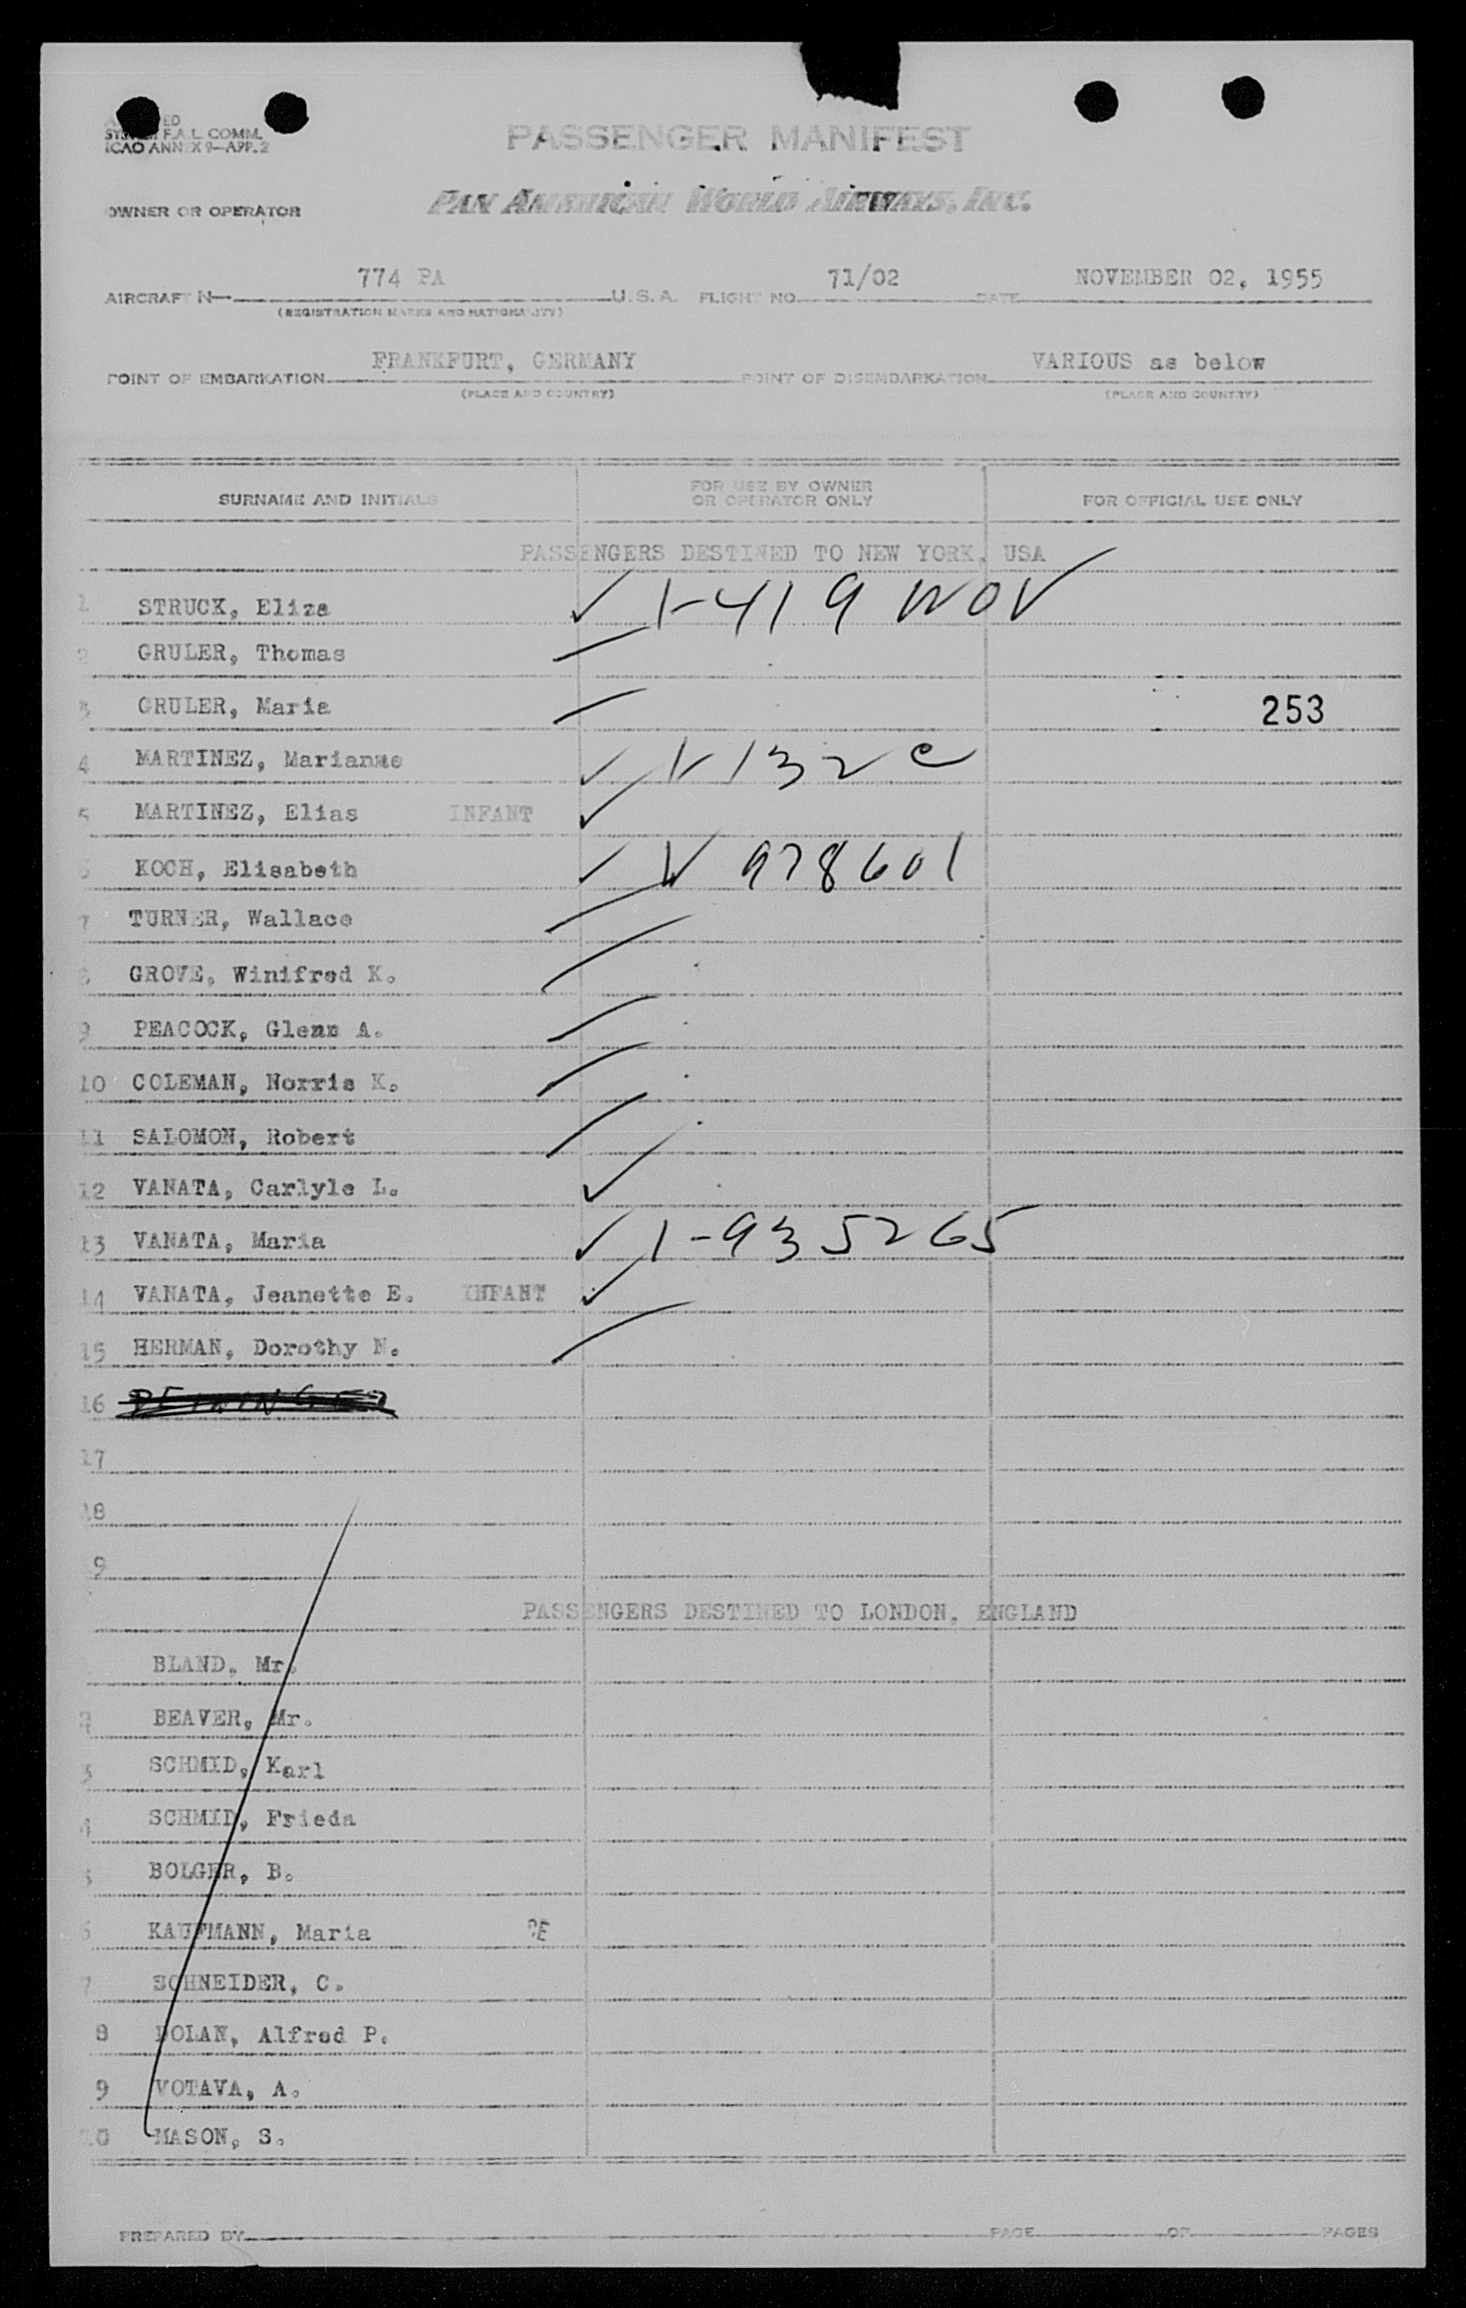 F.A.L. COMM.
ICAO ANNEX 9—APP. 2
PASSENGER MANIFEST
OWNER OR OPERATOR PAN AMERICAN WORLD AIRWAYS, INC.
774 PA 71/02 NOVEMBER 02, 1955
AIRCRAFT N— U.S.A. FLIGHT NO. DATE
(REGISTRATION MARKS AND NATIONALITY)
FRANKFURT, GERMANY VARIOUS as below
POINT OF EMBARKATION POINT OF DISEMBARKATION
(PLACE AND COUNTRY) (PLACE AND COUNTRY)
SURNAME AND INITIALS FOR USE BY OWNER OR OPERATOR ONLY FOR OFFICIAL USE ONLY
PASSENGERS DESTINED TO NEW YORK, USA
1 STRUCK, Eliza 1-419 NOV
2 GRULER, Thomas
3 GRULER, Maria 253
4 MARTINEZ, Marianne V-132 e
5 MARTINEZ, Elias INFANT
6 KOCH, Elisabeth V 978601
7 TURNER, Wallace
8 GROVE, Winifred K.
9 PEACOCK, Glenn A.
10 COLEMAN, Norris K.
11 SALOMON, Robert
12 VANATA, Carlyle L.
13 VANATA, Maria 1-935265
14 VANATA, Jeanette E. INFANT
15 HERMAN, Dorothy N.
16
17
18
9
PASSENGERS DESTINED TO LONDON, ENGLAND
BLAND, Mr.
2 BEAVER, Mr.
3 SCHMID, Karl
4 SCHMID, Frieda
5 BOLGER, B.
6 KAUFMANN, Maria
7 SCHNEIDER, C.
8 DOLAN, Alfred P.
9 VOTAVA, A.
10 MASON, S.
PREPARED BY PAGE OF PAGES